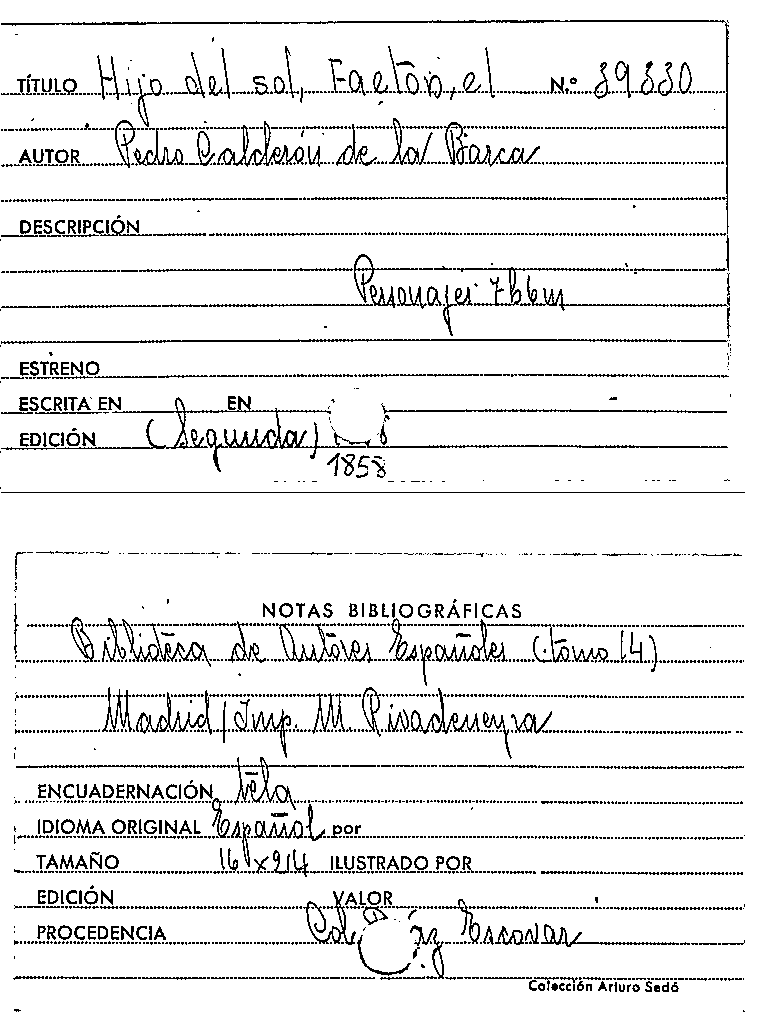 TÍTULO Hijo del sol, Faetón, el N.º 39330
AUTOR Pedro Calderón de la Barca
DESCRIPCIÓN
Personajes 7h 6m
ESTRENO
ESCRITA EN EN
EDICIÓN (Segunda)
1858
NOTAS BIBLIOGRÁFICAS
Biblioteca de Autores Españoles (tomo 14)
Madrid / Imp. M. Rivadeneyra
ENCUADERNACIÓN tela
IDIOMA ORIGINAL Español por
TAMAÑO 16 x 24 ILUSTRADO POR
EDICIÓN VALOR
PROCEDENCIA Escovar
Colección Arturo Sedó